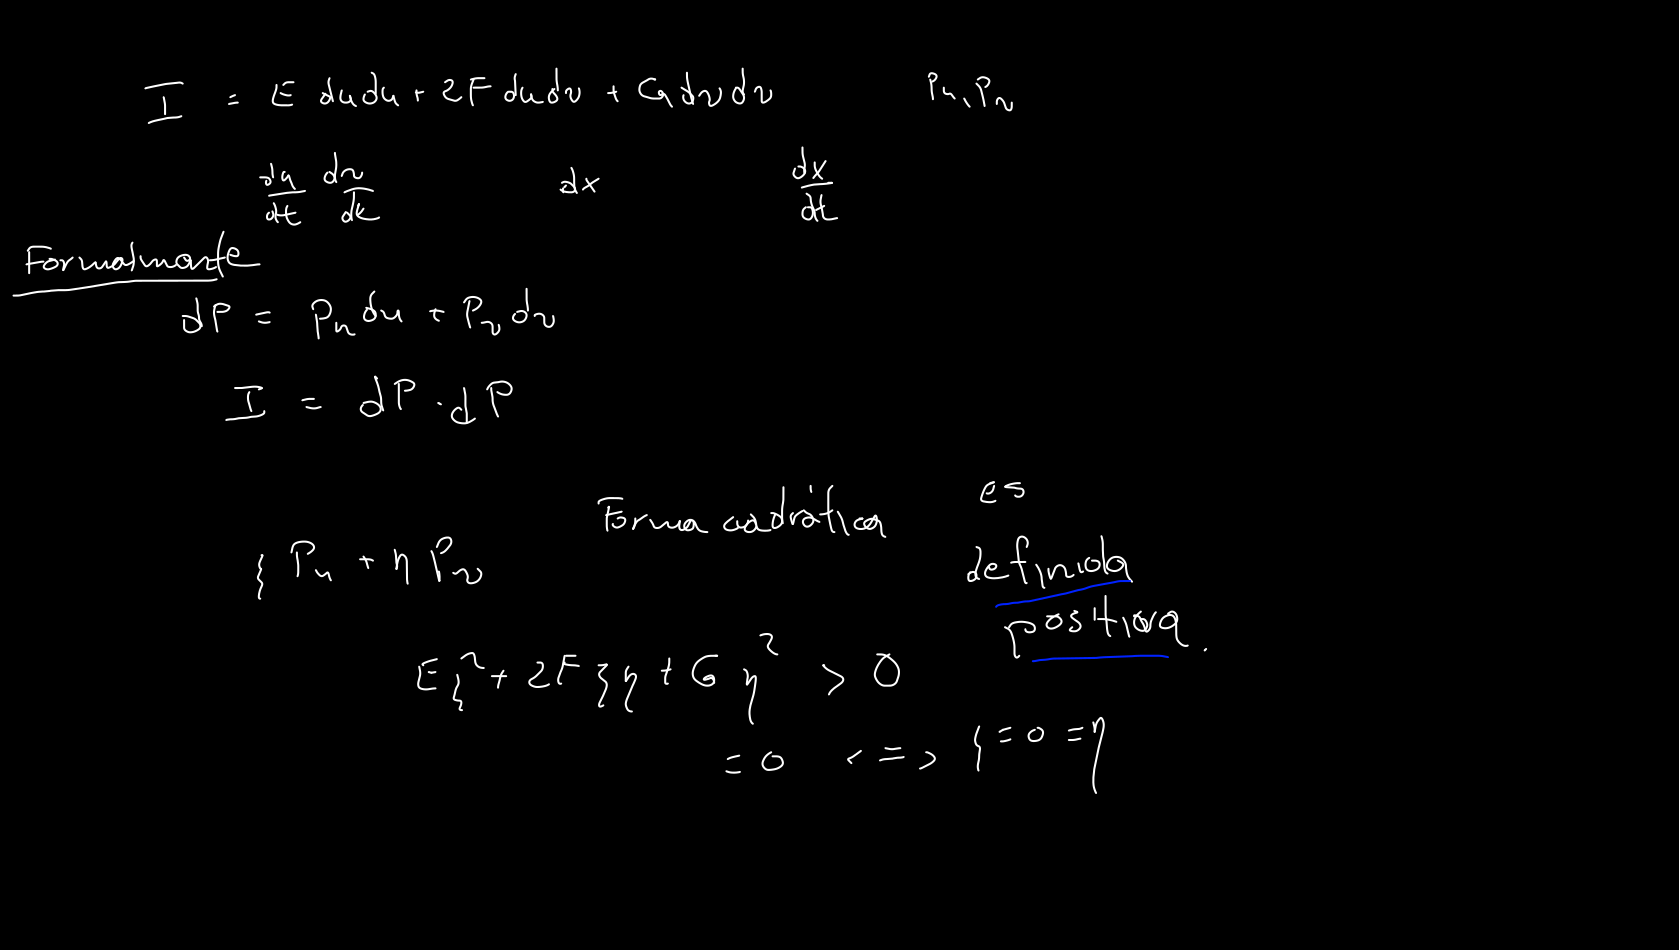 I = E du du + 2F du dv + G dv dv    Pu, Pv
du/dt dv/dt    dx    dx/dt
Formalmente
dP = Pu du + Pv dv
I = dP · dP
Forma cuadrática es
ξ Pu + η Pv    definida
positiva.
E ξ² + 2F ξ η + G η² > 0
= 0 <=> ξ = 0 = η